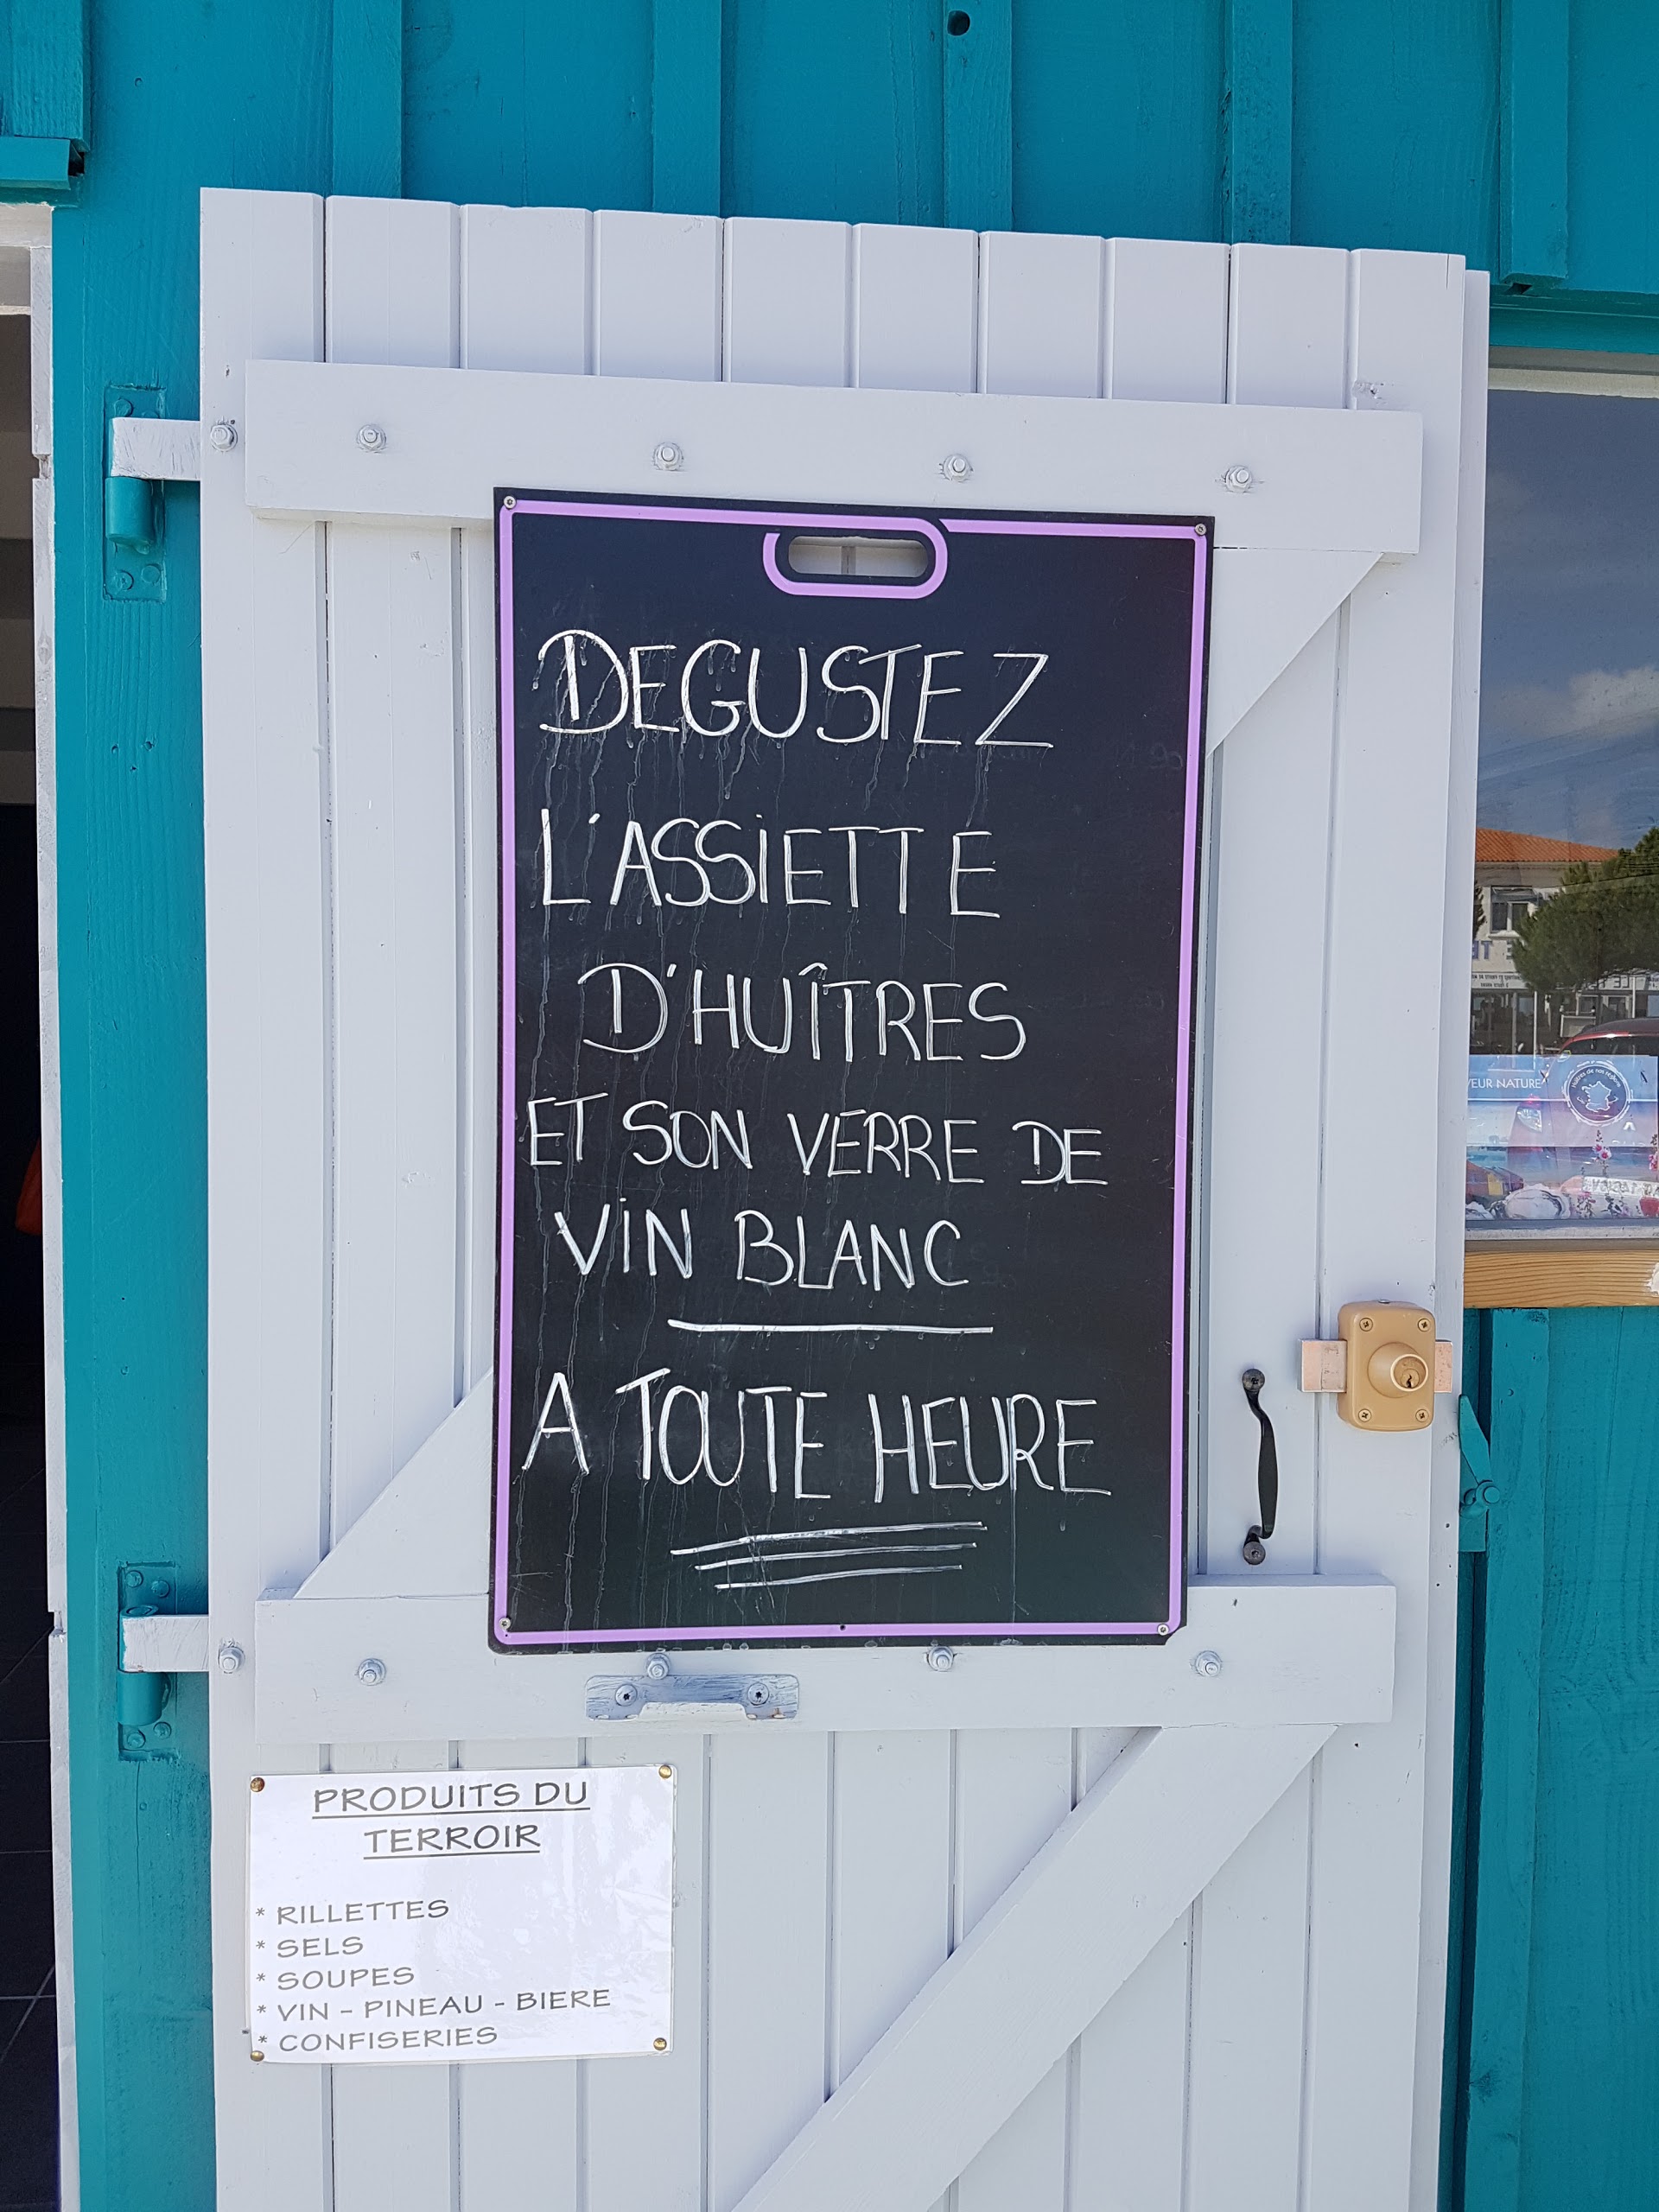 DEGUSTEZ
L'ASSIETTE
D'HUÎTRES
ET SON VERRE DE
VIN BLANC
A TOUTE HEURE
PRODUITS DU
TERROIR
* RILLETTES
* SELS
* SOUPES
* VIN - PINEAU - BIERE
* CONFISERIES
NATURE